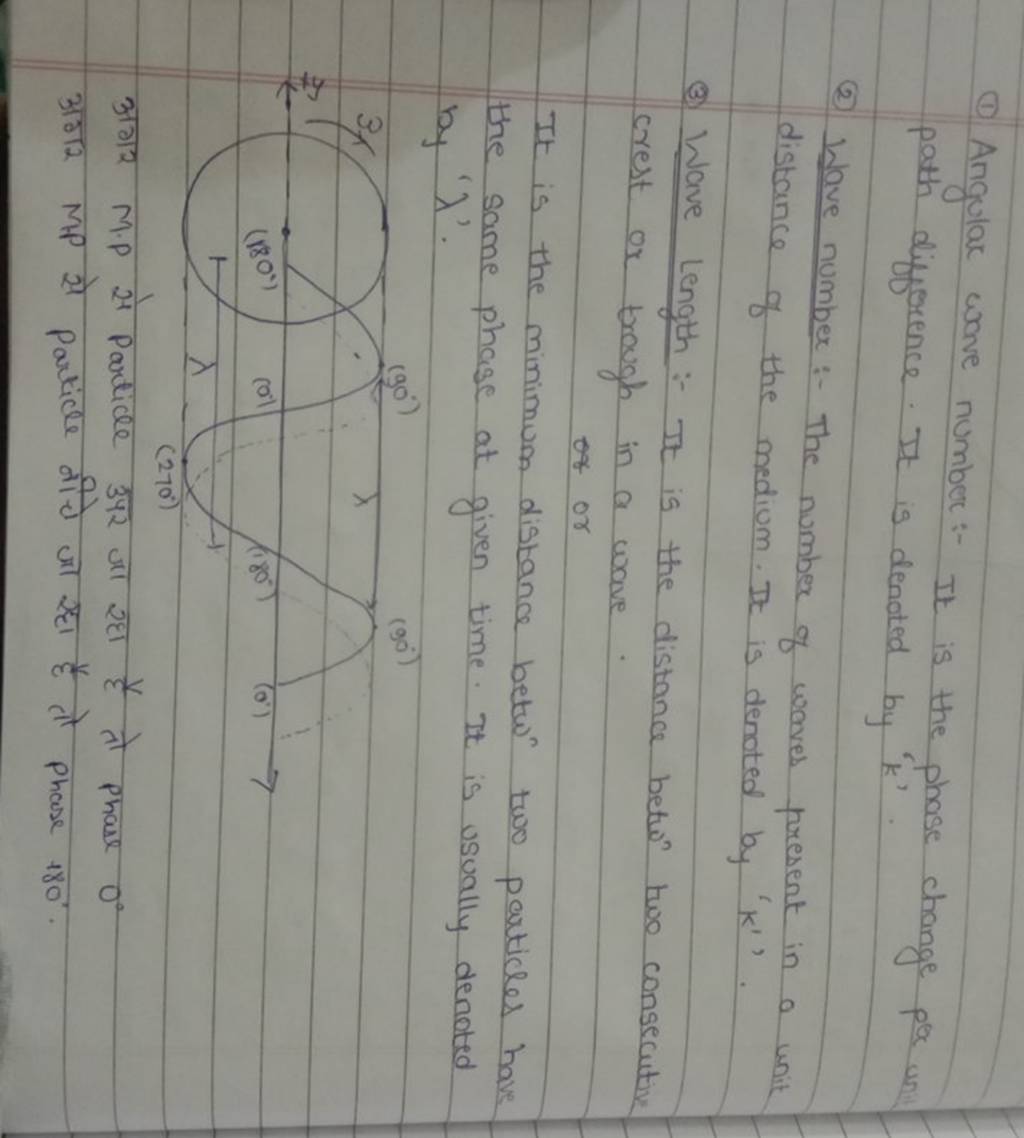 ① Angular wave number :- It is the phase change per unit
path difference. It is denoted by 'k'.
② Wave number :- The number of waves present in a unit
distance of the medium. It is denoted by 'k''.
③ Wave Length :- It is the distance betwⁿ two consecutive
crest or trough in a wave.
or or
It is the minimum distance betwⁿ two particles have
the same phase at given time. It is usually denoted
by 'λ'.
(90°) (90°)
λ
(180°) (0°) (180°) (0°)
λ
(270°)
अगर M.P से Particle ऊपर जा रहा है तो phase 0°
अगर M.P से Particle नीचे जा रहा है तो phase 180°.